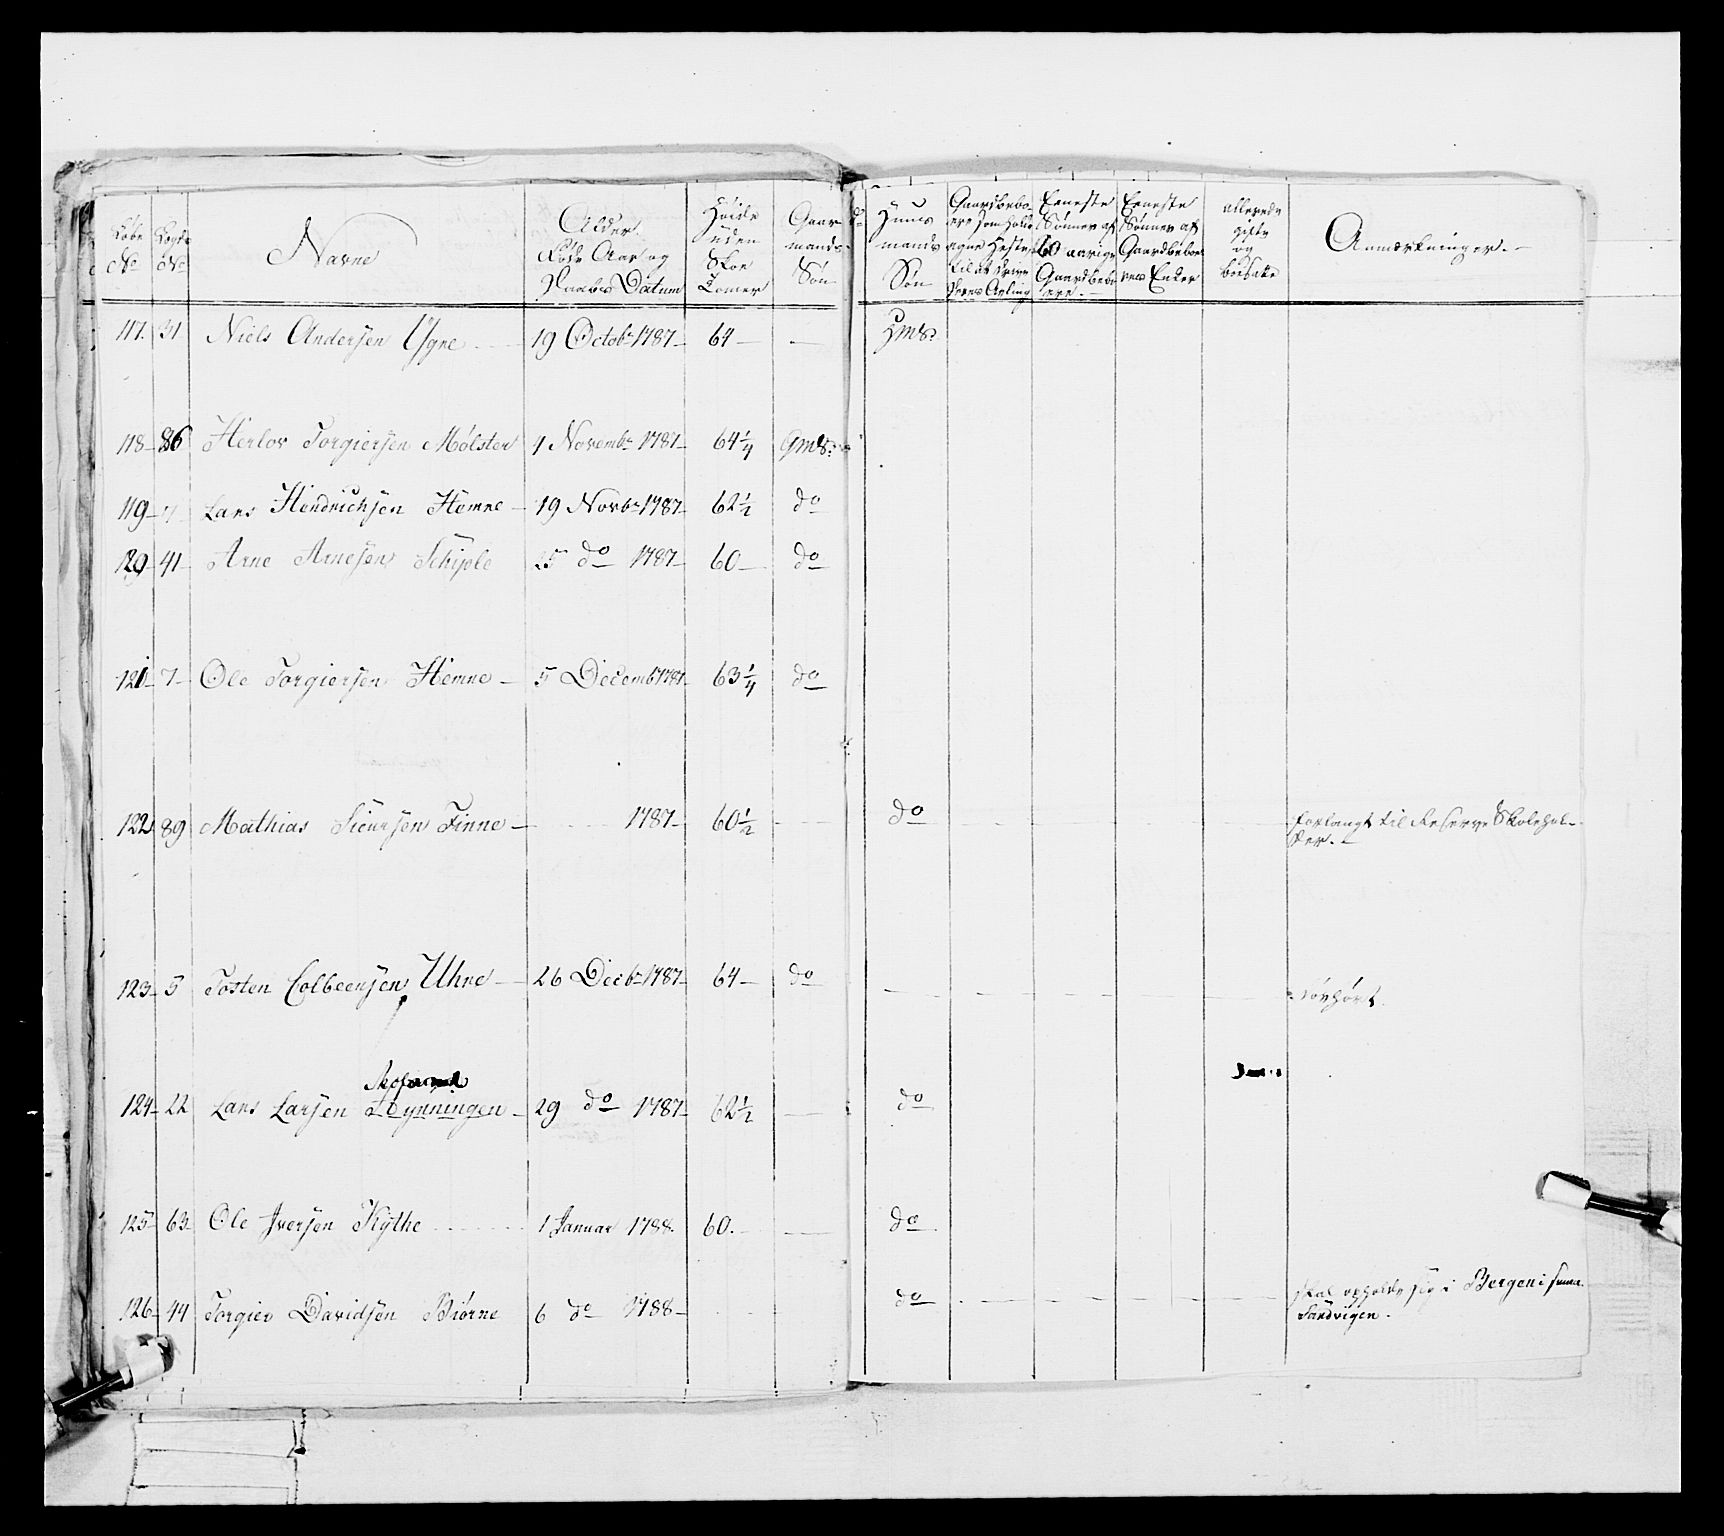 Løbe No | Lægds No | Navne | Alder. Føde Aar og Daabs Datum | Høide uden Skoe Tomer | Gaardmands Søn | Huusmands Søn | Gaardbeboere som holde egne Heste til at drive deres Avling | Eeneste Sønner af 60 aarige Gaardbeboere. | Eeneste Sønner af Gaardbeboeres Enker | allerede gifte og bosatte | Anmærkninger.
117. 31 Niels Andersen Ygne 19 Octobr 1787 64 — Hms:
118 86 Herlov Torgiersen Mølster 1 Novembr 1787 64 1/4 Gms:
119 7 Lars Hendrichsen Hemne 19 Novbr 1787 62 1/2 do
120 41 Arne Arnesen Schjele 25 do 1787 60 do
121 7 Ole Torgiersen Hemne 5 Decemb 1787 63 1/4 do
122 89 Mathias Siursen Finne 1787 60 1/2 do forlangt til Reserve Skolehol-
der.
123 5 Tosten Colbeensen Uhne 26 Decbr 1787 64 do tovhørt
124 22 Lars Larsen Dynningen 29 do 1787 62 1/2 do
125 63 Ole Iversen Kythe 1 Januar 1788. 60. do
126 44 Torgier Davidsen Biørne 6 do 1788 do skal opholde sig i Bergen i
Sandvigen.